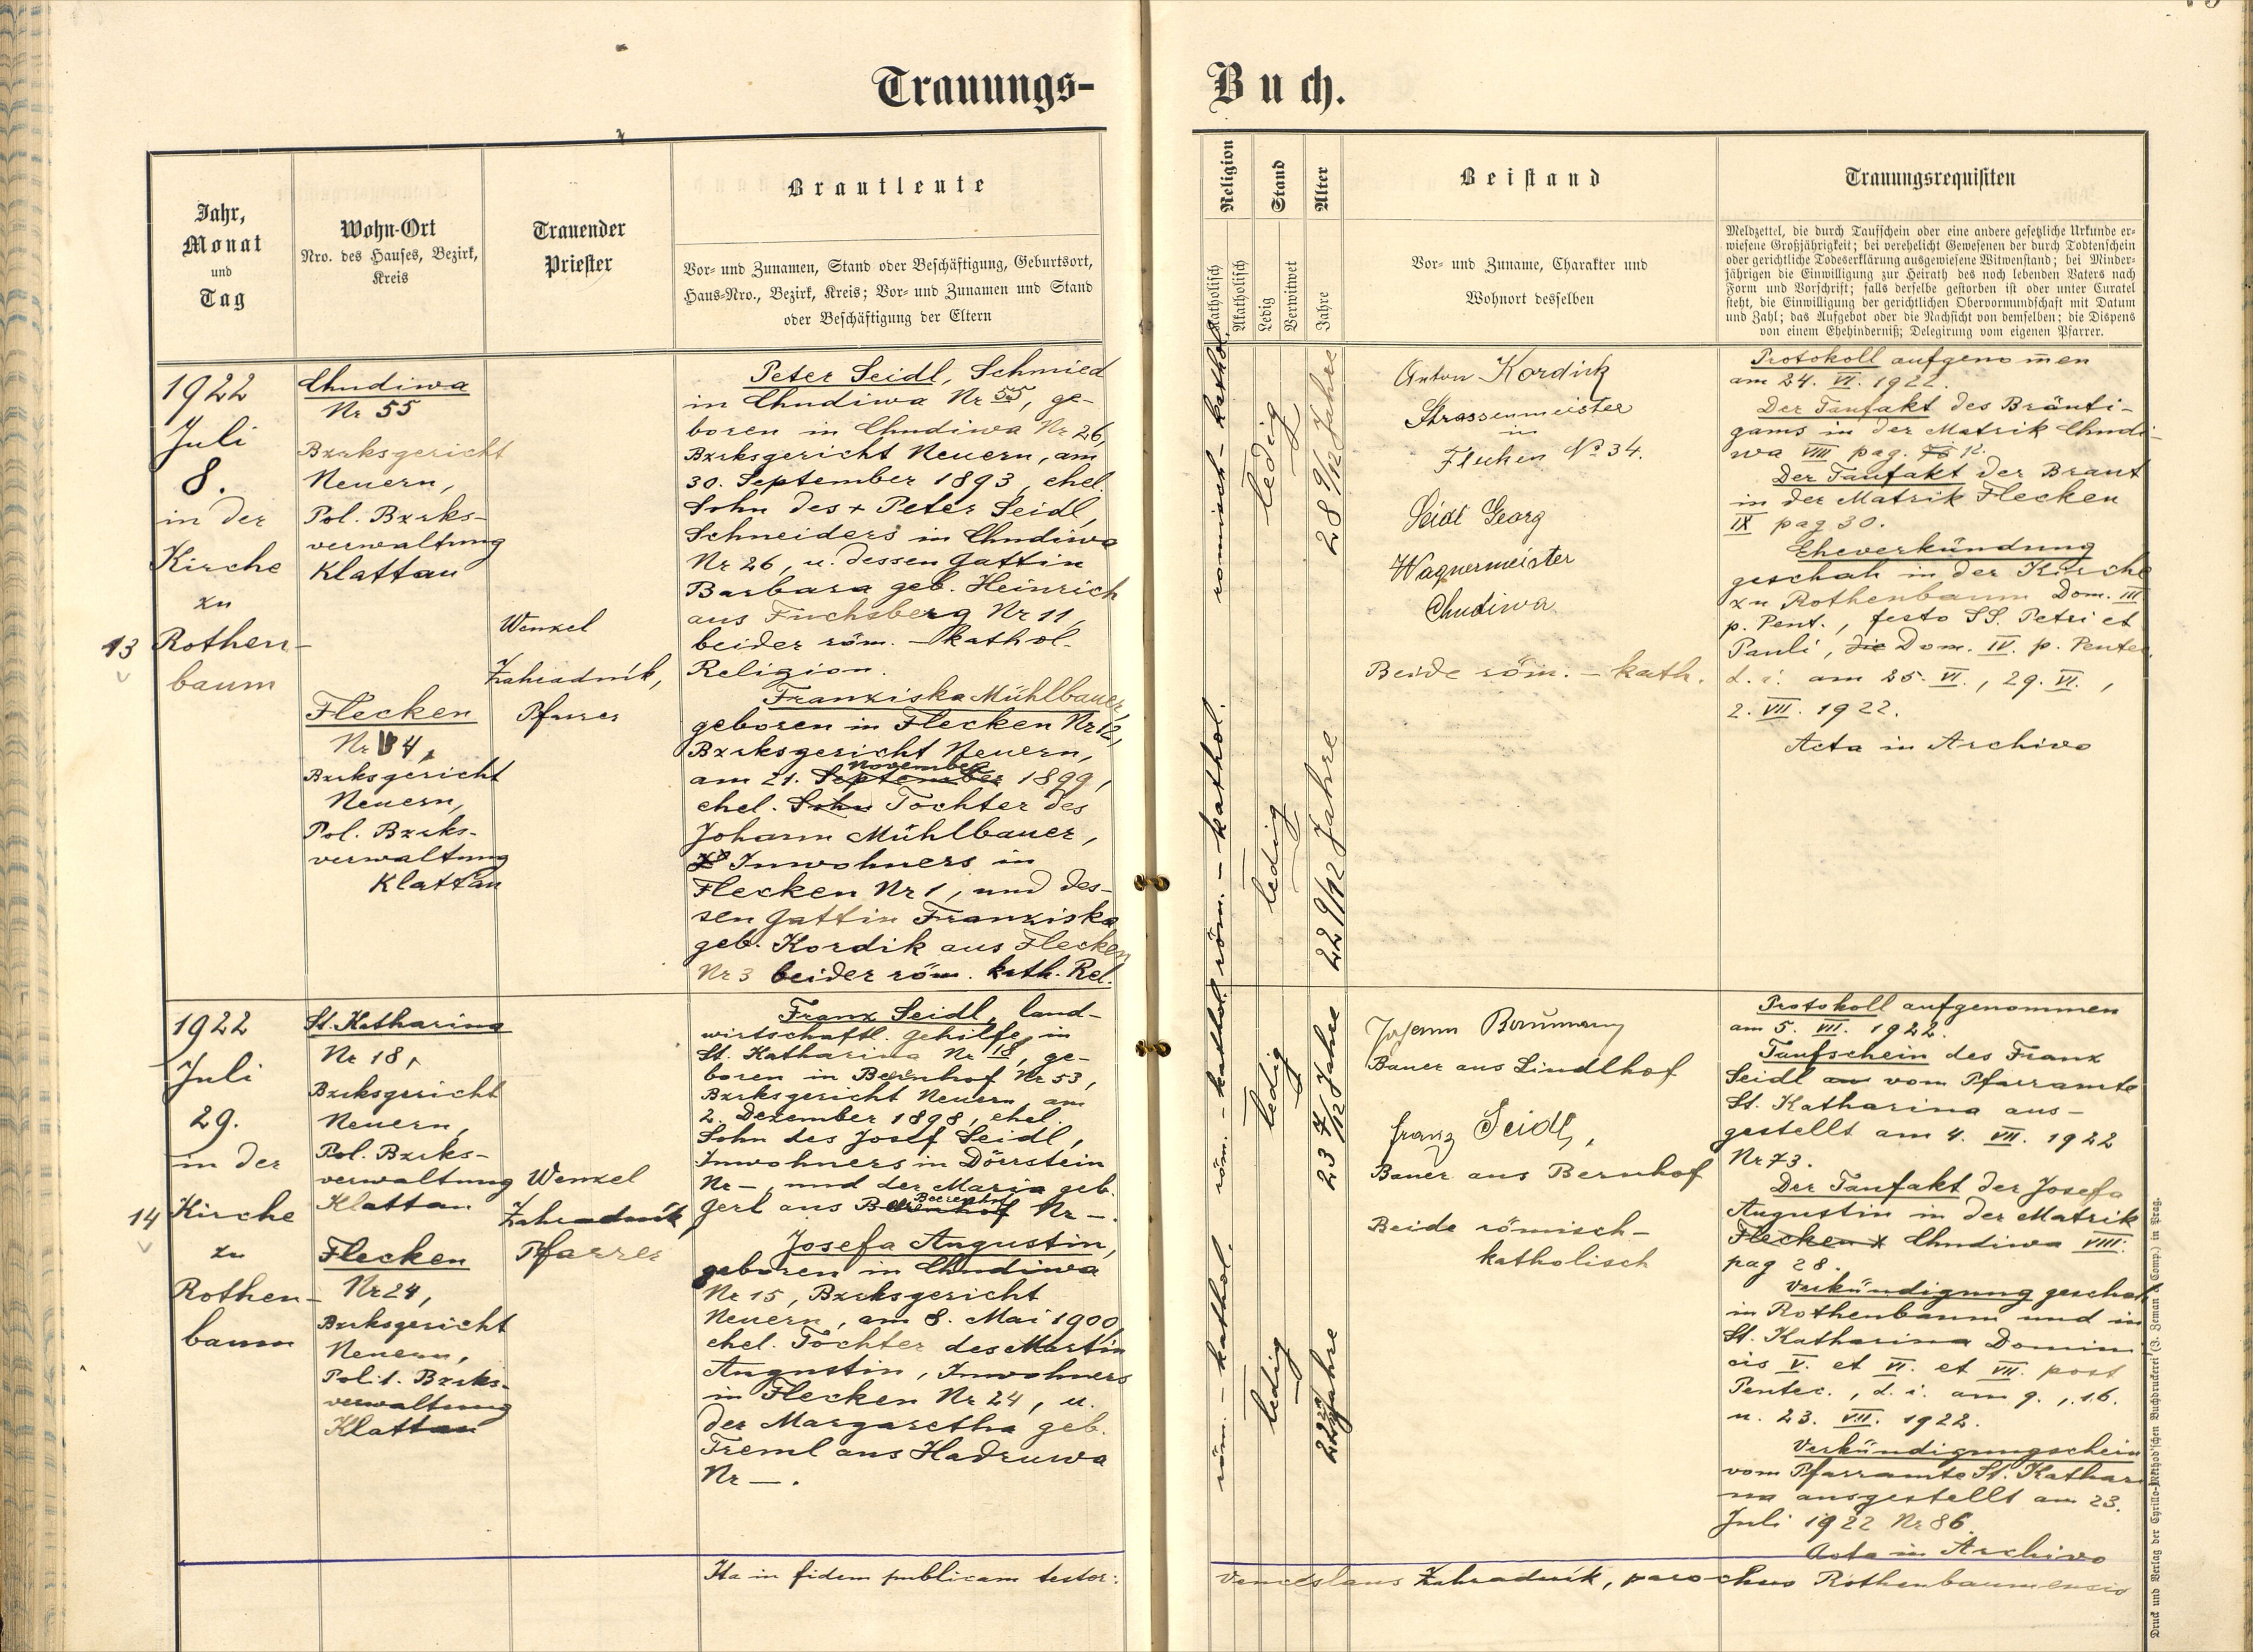 Trauungs-
Jahr,
Monat
und
Tag
Wohn-Ort
Nro. des Hauses, Bezirk,
Kreis
Trauender
Priester
Brautleute
Vor- und Zunamen, Stand oder Beschäftigung, Geburtsort,
Haus-Nro., Bezirk, Kreis; Vor- und Zunamen und Stand
oder Beschäftigung der Eltern
13
1922
Juli
8.
in der
Kirche
zu
Rothen-
baum
Chudiwa
Nr 55
Bzrksgericht
Neuern,
Pol. Bzrks-
verwaltung
Klattau
Flecken
Nr 4,
Bzrksgericht
Neuern,
Pol. Bzrks-
verwaltung
Klattau
Wenzel
Zahradník,
Pfarrer
Peter Seidl, Schmied
in Chudiwa Nr 55, ge-
boren in Chudiwa Nr 26,
Bzrksgericht Neuern, am
30. September 1893, ehel.
Sohn des + Peter Seidl,
Schneiders in Chudiwa
Nr 26, u. dessen Gattin
Barbara geb. Heinrich
aus Fuchsberg Nr 11,
beider röm. - kathol.
Religion.
Franziska Mühlbauer,
geboren in Flecken Nr 12,
Bzrksgericht Neuern,
november
am 21. September 1899,
ehel. Sohn Tochter des
Johann Mühlbauer,
Inwohners in
Flecken Nr 1, und des-
sen Gattin Franziska
geb. Kordik aus Flecken
Nr 3 beider röm. kath. Rel.
14
1922
Juli
29.
in der
Kirche
zu
Rothen-
baum
St. Katharina
Nr 18,
Bzrksgericht
Neuern,
Pol. Bzrks-
verwaltung
Klattau
Flecken
Nr 24,
Bzrksgericht
Neuern,
Polit. Bzrks-
verwaltung
Klattau
Wenzel
Zahradník
Pfarrer
Franz Seidl, land-
wirtschaftl. Gehilfe, in
St. Katharina Nr 18, ge-
boren in Bernhof Nr 53,
Bzrksgericht Neuern, am
2. Dezember 1898, ehel.
Sohn des Josef Seidl,
Inwohners in Dörrstein
Nr —, und der Maria geb.
Gerl aus Nr —.
Josefa Augustin,
geboren in Chudiwa
Nr 15, Bzrksgericht
Neuern, am 8. Mai 1900,
ehel. Tochter des Martin
Augustin, Inwohners
in Flecken Nr 24, u.
der Margaretha geb.
Treml aus Hadruwa
Nr —.
Ita in fidem publicam testor:
Buch.
Religion
Katholisch
Akatholisch
Stand
Ledig
Verwitwet
Alter
Jahre
Beistand
Vor- und Zuname, Charakter und
Wohnort desselben
Trauungsrequisiten
Meldzettel, die durch Taufschein oder eine andere gesetzliche Urkunde er-
wiesene Großjährigkeit; bei verehelicht Gewesenen der durch Todtenschein
oder gerichtliche Todeserklärung ausgewiesene Witwenstand; bei Minder-
jährigen die Einwilligung zur Heirath des noch lebenden Vaters nach
Form und Vorschrift; falls derselbe gestorben ist oder unter Curatel
steht, die Einwilligung der gerichtlichen Obervormundschaft mit Datum
und Zahl; das Aufgebot oder die Nachsicht von demselben; die Dispens
von einem Ehehinderniß; Delegirung vom eigenen Pfarrer.
römisch - kathol.
ledig
28 9/12 Jahre
röm. - kathol.
ledig
22 9/12 Jahre
Anton Kordick
Strassenmeister
in
Flecken No 34.
Seidl Georg
Wagnermeister
Chudiwa
Beide röm. - kath.
Protokoll aufgenommen
am 24. VI. 1922.
Der Taufakt des Bräuti-
gams in der Matrik Chudi-
wa VIII pag. 12.
Der Taufakt der Braut
in der Matrik Flecken
IX pag 30.
Eheverkündung
geschah in der Kirche
zu Rothenbaum Dom. III
p. Pent., festo SS. Petri et
Pauli, die Dom. IV. p. Pentec.
d. i. am 25. VI., 29. VI.,
2. VII. 1922.
Acta in Archivo
röm. - kathol.
ledig
23 7/12 Jahre
röm. - kathol.
ledig
Jahre
Johann Baumann
Bauer aus Lindlhof
Franz Seidl,
Bauer aus Bernhof
Beide römisch-
katholisch
Protokoll aufgenommen
am 5. VII. 1922.
Taufschein des Franz
Seidl vom Pfarramte
St. Katharina aus-
gestellt am 4. VII. 1922
Nr 73.
Der Taufakt der Josefa
Augustin in der Matrik
Flecken Chudiwa VIII.
pag 28.
Verkündigung geschah
in Rothenbaum und in
St. Katharina Domini
cis V. et VI. et VII. post
Pentec., d. i. am 9., 16.
u. 23. VII. 1922.
Verkündigungschein
vom Pfarramte St. Kathari
na ausgestellt am 23.
Juli 1922 Nr 86.
Acta in Archivo
Venceslaus Zahradník, parochus Rothenbaumensis
Druck und Verlag der Cyrillo-Method'schen Buchdruckerei (J. Zeman & Comp.) in Prag.